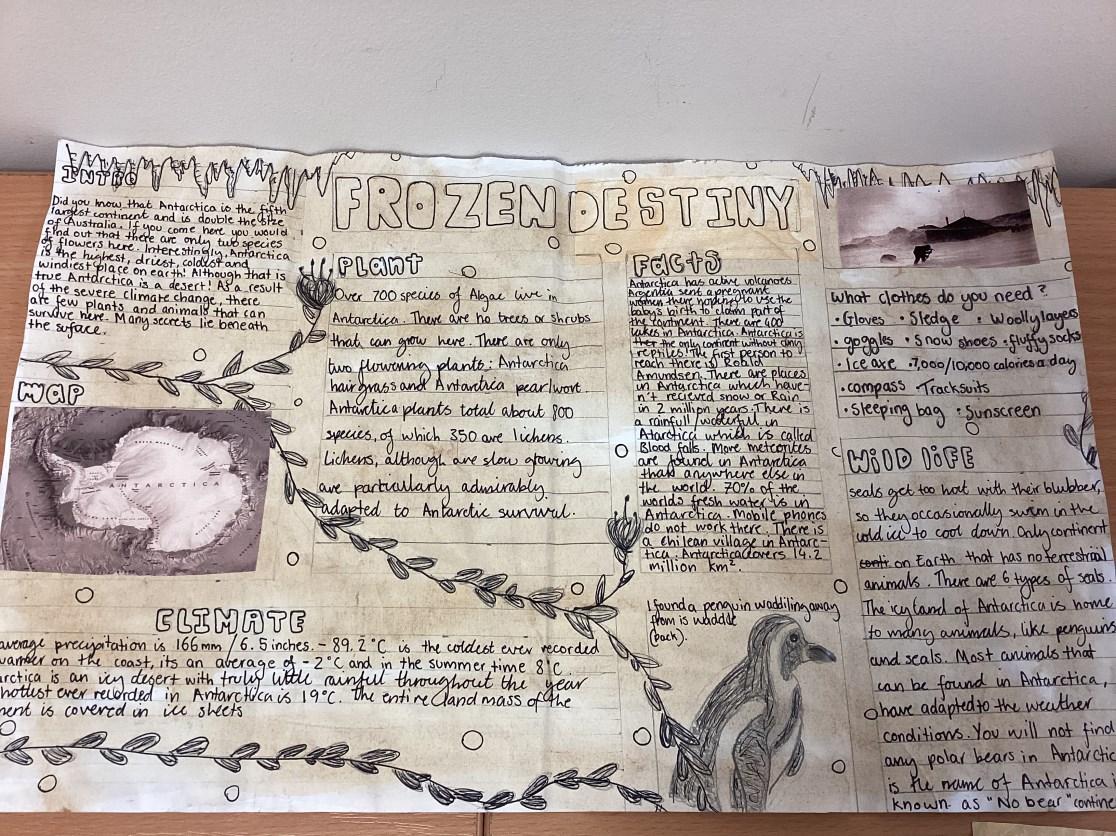 FROZEN DESTINY
INTRO
Did you know that Antarctica is the fifth
largest continent and is double the size
of Australia. If you come here you would
find out that there are only two species
of flowers here. Interestingly, Antarctica
is the highest, driest, coldest and
windiest place on earth! Although that is
true Antarctica is a desert! As a result
of the severe climate change, there
are few plants and animals that can
survive here. Many secrets lie beneath
the suface.
MAP
ANTARCTICA
Plant
Over 700 species of Algae live in
Antarctica. There are no trees or shrubs
that can grow here. There are only
two flowering plants: Antarctica
hairgrass and Antarctica pearlwort.
Antarctica plants total about 800
species, of which 350 are lichens.
Lichens, although are slow growing
are particularly admirably
adapted to Antarctic survival.
CLIMATE
average precipitation is 166mm / 6.5 inches. -89.2°C is the coldest ever recorded
warmer on the coast, its an average of -2°C and in the summer time 8°C.
arctica is an icy desert with truly little rainful throughout the year
hottest ever recorded in Antarctica is 19°C. The entire land mass of the
nent is covered in ice sheets
Facts
Antarctica has active volcanoes
Argentia sent a pregnant
women there hoping to use the
baby's birth to claim part of
the continent. There are 400
lakes in Antarctica. Antarctica is
the only continent without any
reptiles! The first person to
reach there is Roald
Amundsen. There are places
in Antarctica which have-
n't recieved snow or Rain
in 2 million years. There is
a rainfull/waterful in
Atarctica which is called
Blood falls. More meteorites
are found in Antarctica
than anywhere else in
the world. 70% of the
worlds fresh water is in
Antarctica. Mobile phones
do not work there. There is
a chilean village in Antarc-
tica. Antarctica covers 14.2
million km².
I found a penguin waddiling away
from is waddle
(back).
What clothes do you need?
• Gloves • Sledge • Woolly layers
• goggles • Snow shoes • fluffy socks
• ice axe • 7,000/10,000 calories a day
• compass Tracksuits
• Sleeping bag • Sunscreen
Wild life
seals get too hot with their blubber,
so they occasionally swim in the
cold ice to cool down. Only continent
on Earth that has no terrestrial
animals. There are 6 types of seals.
The icy land of Antarctica is home
to many animals, like penguins
and seals. Most animals that
can be found in Antarctica,
have adapted to the weather
conditions. You will not find
any polar bears in Antarctic
is the name of Antarctica
known as "No bear" contine